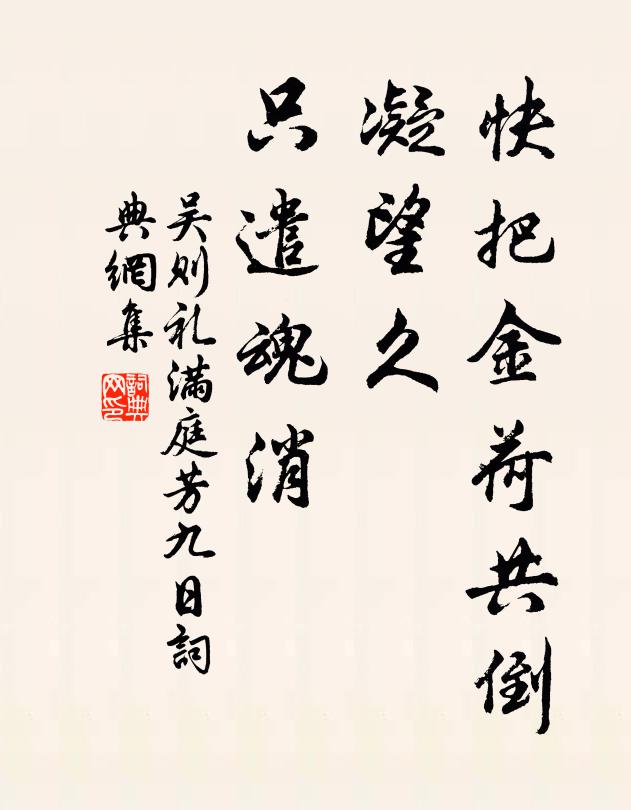 快把金荷共倒
凝望久
只遣魂消
吴则礼满庭芳九日詞
典網集
詞典
网印